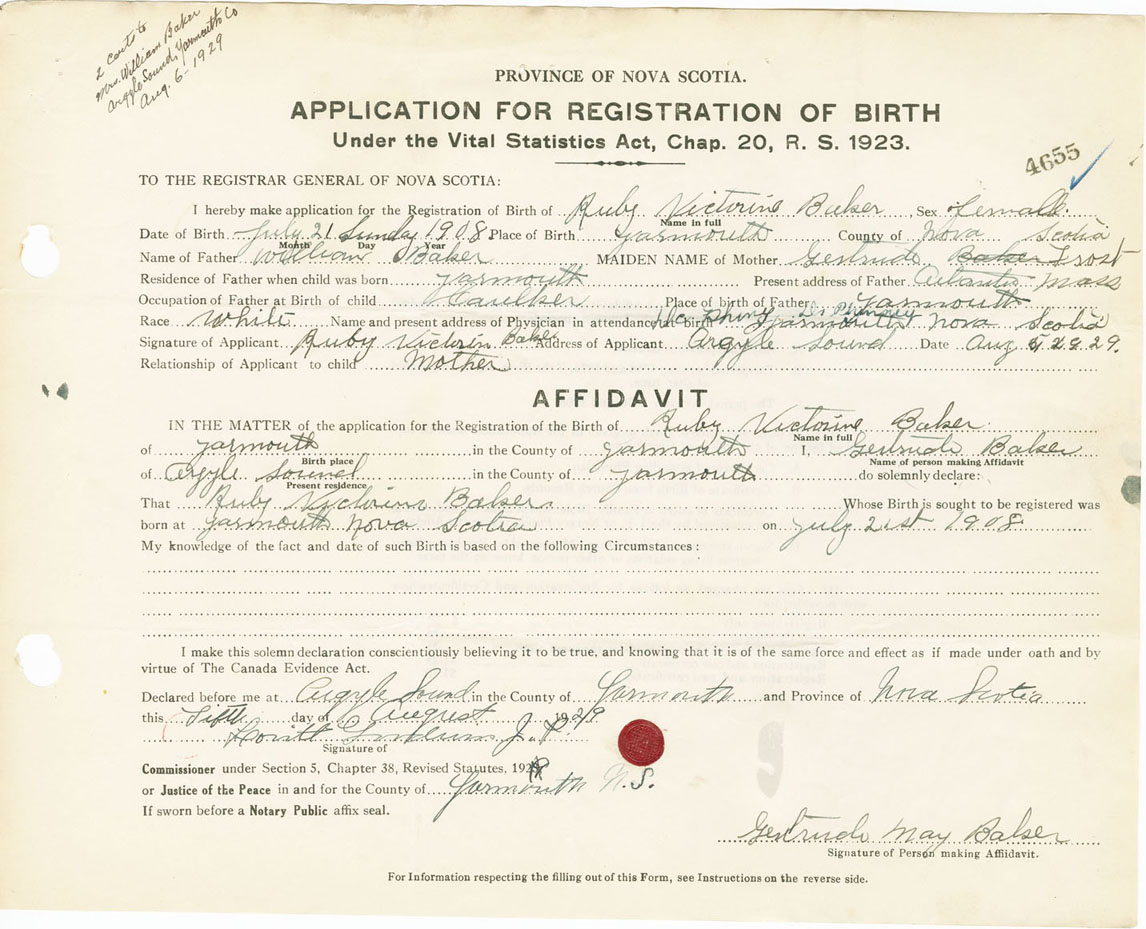 2 certs to
Mrs. William Baker
Argyle Sound, Yarmouth Co
Aug. 6 - 1929
PROVINCE OF NOVA SCOTIA.
APPLICATION FOR REGISTRATION OF BIRTH
Under the Vital Statistics Act, Chap. 20, R. S. 1923.
4655
TO THE REGISTRAR GENERAL OF NOVA SCOTIA:
I hereby make application for the Registration of Birth of Ruby Victorine Baker, Sex Female.
Name in full
Date of Birth July 21 Sunday 1908 Place of Birth Yarmouth County of Nova Scotia
Month Day Year
Name of Father William Baker MAIDEN NAME of Mother Gertrude Baker Frost
Residence of Father when child was born Yarmouth Present address of Father Atlantic Mass
Occupation of Father at Birth of child Caulker Place of birth of Father Yarmouth
Race White Name and present address of Physician in attendance at birth Yarmouth Nova Scotia
Signature of Applicant Ruby Victorin Baker Address of Applicant Argyle Sound Date Aug 29.
Relationship of Applicant to child Mother
AFFIDAVIT
IN THE MATTER of the application for the Registration of the Birth of Ruby Victorine Baker
Name in full
of Yarmouth in the County of Yarmouth I, Gertrude Baker
Birth place Name of person making Affidavit
of Argyle Sound in the County of Yarmouth do solemnly declare:
Present residence
That Ruby Victorine Baker Whose Birth is sought to be registered was
born at Yarmouth Nova Scotia on July 21st 1908
My knowledge of the fact and date of such Birth is based on the following Circumstances:
I make this solemn declaration conscientiously believing it to be true, and knowing that it is of the same force and effect as if made under oath and by
virtue of The Canada Evidence Act.
Declared before me at Argyle Sound in the County of Yarmouth and Province of Nova Scotia
this Fifth day of August 1929
J. P.
Signature of
Commissioner under Section 5, Chapter 38, Revised Statutes, 19
or Justice of the Peace in and for the County of Yarmouth N.S.
If sworn before a Notary Public affix seal.
Gertrude May Baker
Signature of Person making Affidavit.
For Information respecting the filling out of this Form, see Instructions on the reverse side.